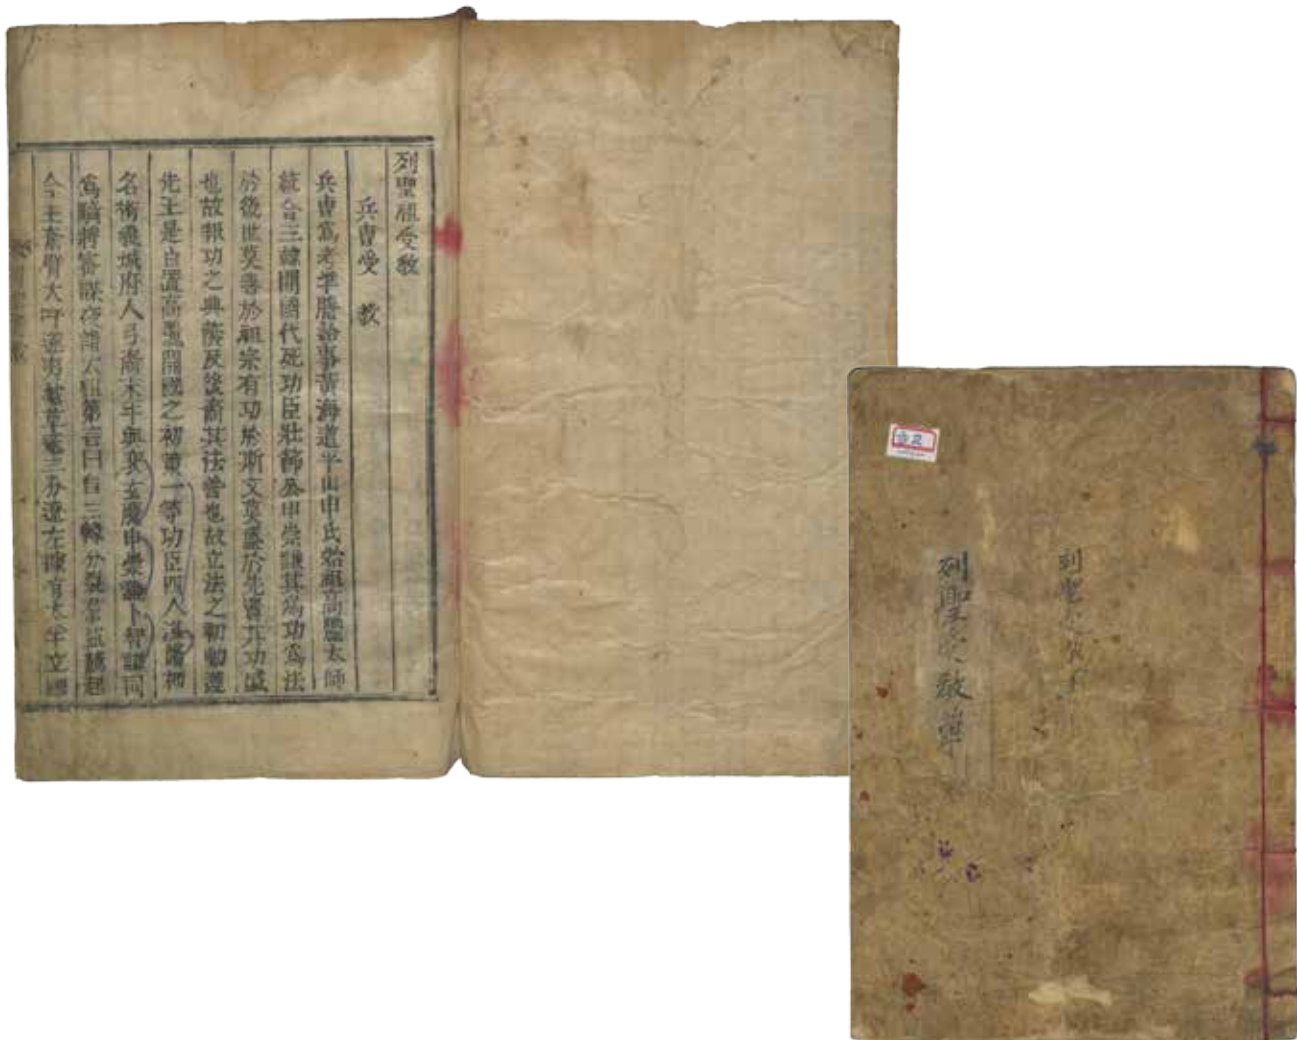 列聖祖受敎
兵曺受 敎
兵曺爲考準謄給事黃海道平山申氏始祖高麗太師
統合三韓開國代死功臣壯節公申崇謙其爲功爲法
於後世莫善於祖宗有功於斯文莫盛於先賢其功盛
也故報功之典陰及後裔其法善也故立法之初勿遵
先王是白置高麗開國之初第一等功臣四人洪儒初
名術義城府人弓裔末年與裵玄慶申崇謙卜智謙同
爲騎將密謀夜詣太祖第言曰自三韓分裂羣盜競起
今王奮臂大呼遂夷 草 三分遼左據有太半立國
列聖受敎單
列聖